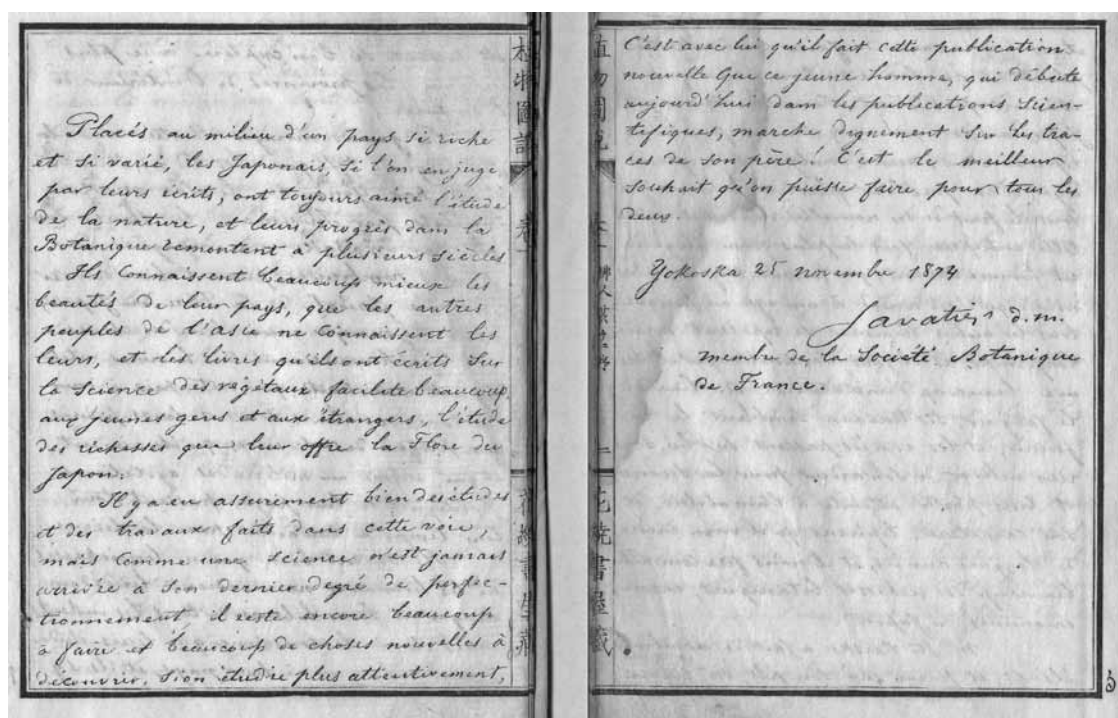 Placés au milieu d'un pays si riche
et si varié, les Japonais, si l'on en juge
par leurs écrits, ont toujours aimé l'étude
de la nature, et leurs progrès dans la
Botanique remontent à plusieurs siècles
Ils connaissent beaucoup mieux les
beautés de leur pays, que les autres
peuples de l'asie ne connaissent les
leurs, et les livres qu'ils ont écrits sur
la science des végétaux facilite beaucoup,
aux jeunes gens et aux étrangers, l'étude
des richesses que leur offre la Flore du
Japon.
Il y a eu assurement bien des études
et des travaux faits dans cette voie,
mais comme une science n'est jamais
arrivée à son dernier degré de perfec-
tionnement il reste encore beaucoup
à faire et beaucoup de choses nouvelles à
découvrir, si on étudie plus attentivement,
植物圖說
C'est avec lui qu'il fait cette publication
nouvelle Que ce jeune homme, qui débute
aujourd'hui dans les publications Scien-
tifiques, marche dignement sur les tra-
ces de son père! C'est le meilleur
souhait qu'on puisse faire pour tous les
deux.
Yokoska 25 novembre 1874
Savatier d.m.
membre de la Société Botanique
de France.
植物圖說
書屋藏